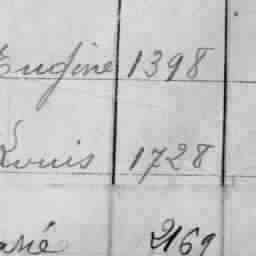 Eugine 1398
Louis 1728
2169